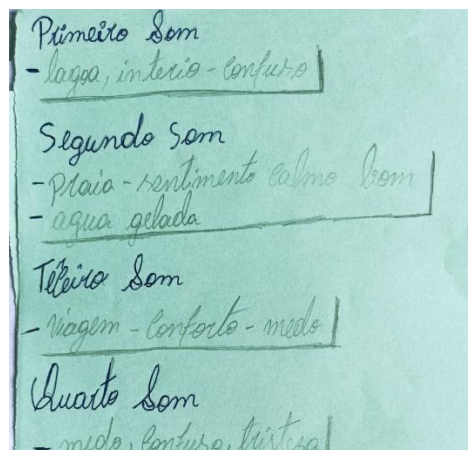 Primeiro Som
- lagoa, interio - confuso
Segundo Som
- Praia - sentimento calmo bom
- agua gelada
Teceiro Som
- Viagem - Conforto - medo
Quarto Som
- medo, confuso, tristeza